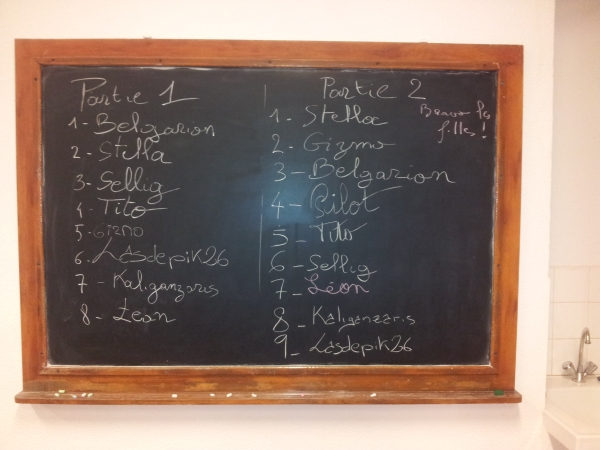 Partie 1
1- Belgarion
2- Stella
3- Sellig
4- Tito
5- Gizmo
6. Lasdepik26
7 - Kaliganzaris
8 - Leon
Partie 2
1- Stella
2- Gizmo
3 - Belgarion
4 - Pilot
5 - Tito
6 - Sellig
7 - Léon
8 - Kaliganzaris
9 - Lasdepik26
Bravo les
filles !